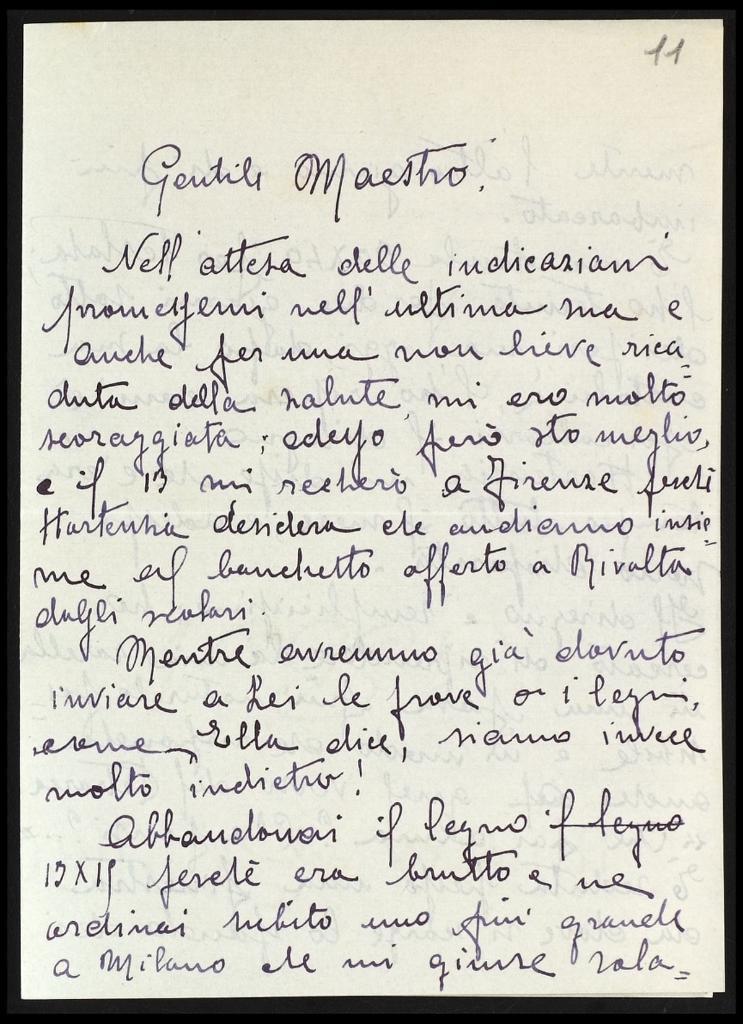 11
Gentile Maestro,
Nell'attesa delle indicazioni
promessemi nell'ultima sua e
anche per una non lieve rica=
duta della salute, mi ero molto
scoraggiata; adesso però sto meglio,
e il 13 mi recherò a Firenze perchè
Hortensia desidera che andiamo insie=
me al banchetto offerto a Rivolta
dagli scolari.
Mentre avremmo già dovuto
inviare a Lei le prove o i legni,
come Ella dice, siamo invece
molto indietro!
Abbandonai il legno il legno
13X15 perchè era brutto e ne
ordinai subito uno più grande
a Milano che mi giunse sola=